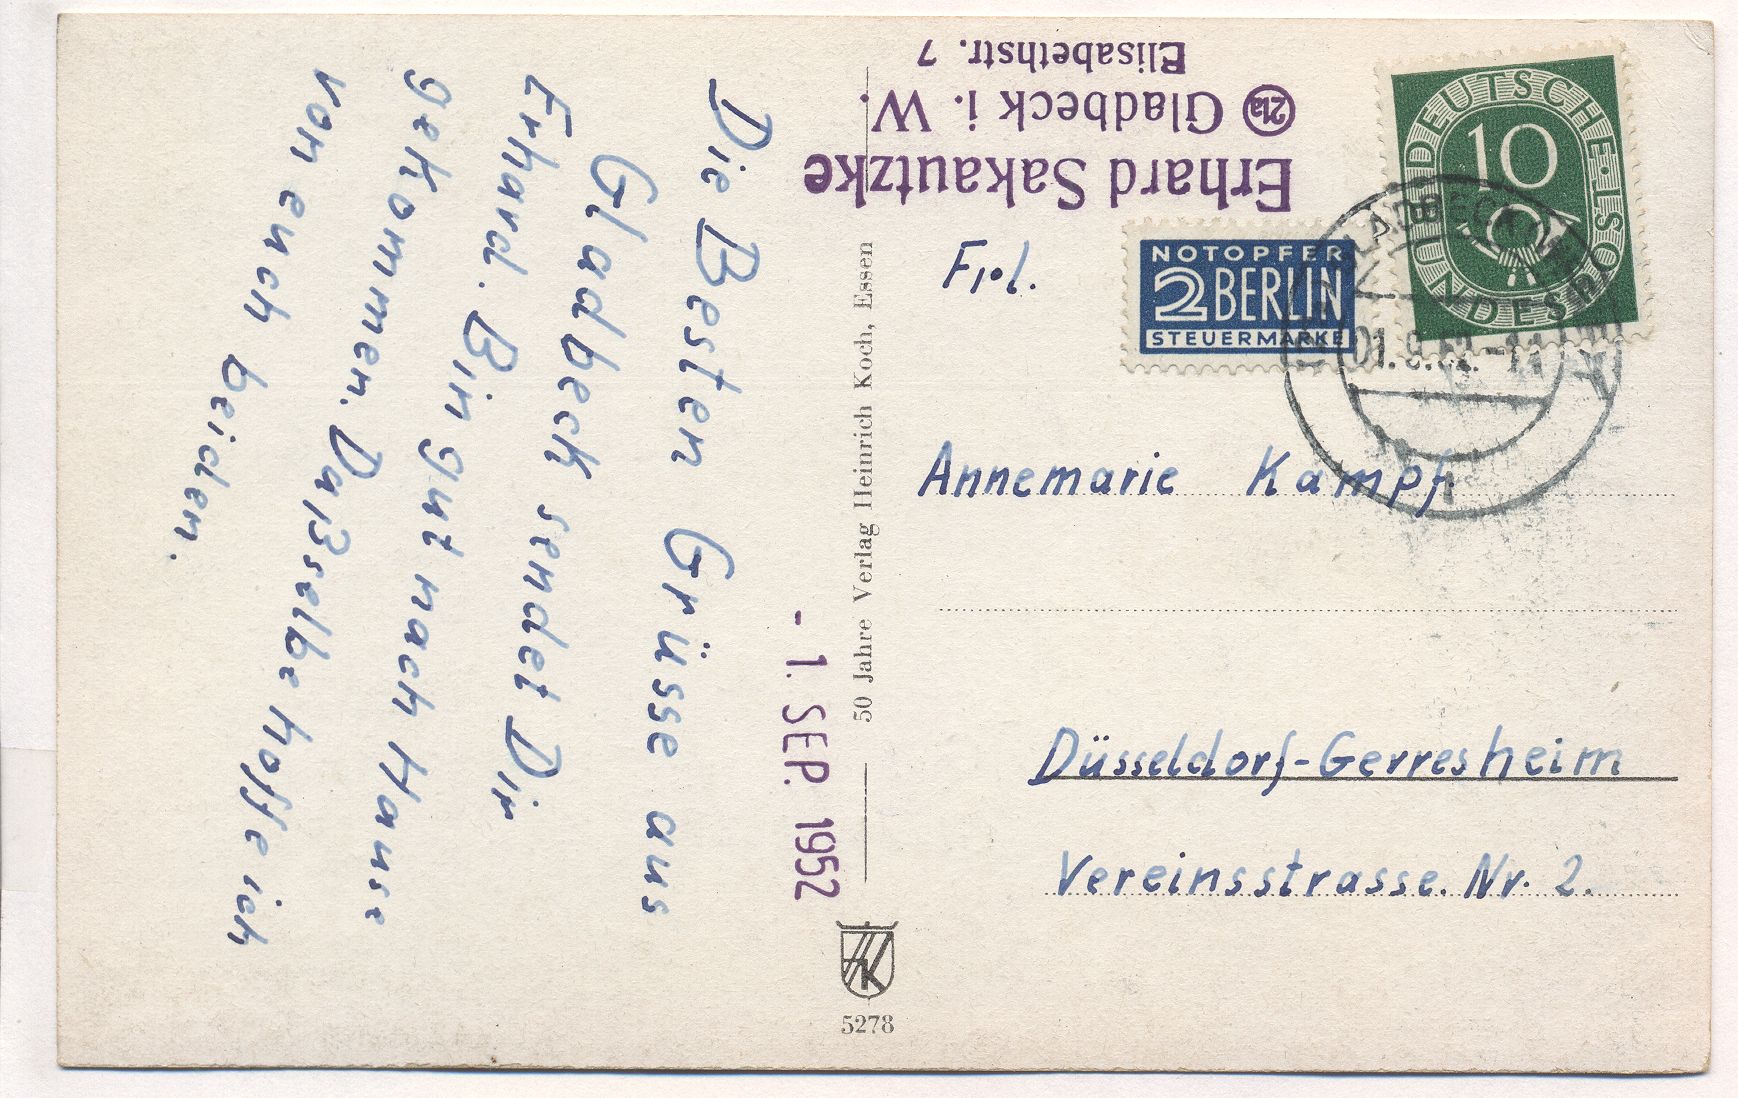 Die Besten Grüsse aus
Gladbeck sendet Dir
Erhard. Bin gut nach Hause
gekommen. Daßselbe hoffe ich
von euch beiden.
- 1. SEP. 1952
50 Jahre Verlag Heinrich Koch, Essen
HK
5278
Erhard Sakautzke
21a Gladbeck i. W.
Elisabethstr. 7
DEUTSCHE BUNDESPOST
10
NOTOPFER
2 BERLIN
STEUERMARKE
GLADBECK
Frl.
Annemarie Kampf.
Düsseldorf-Gerresheim
Vereinsstrasse. Nr. 2.